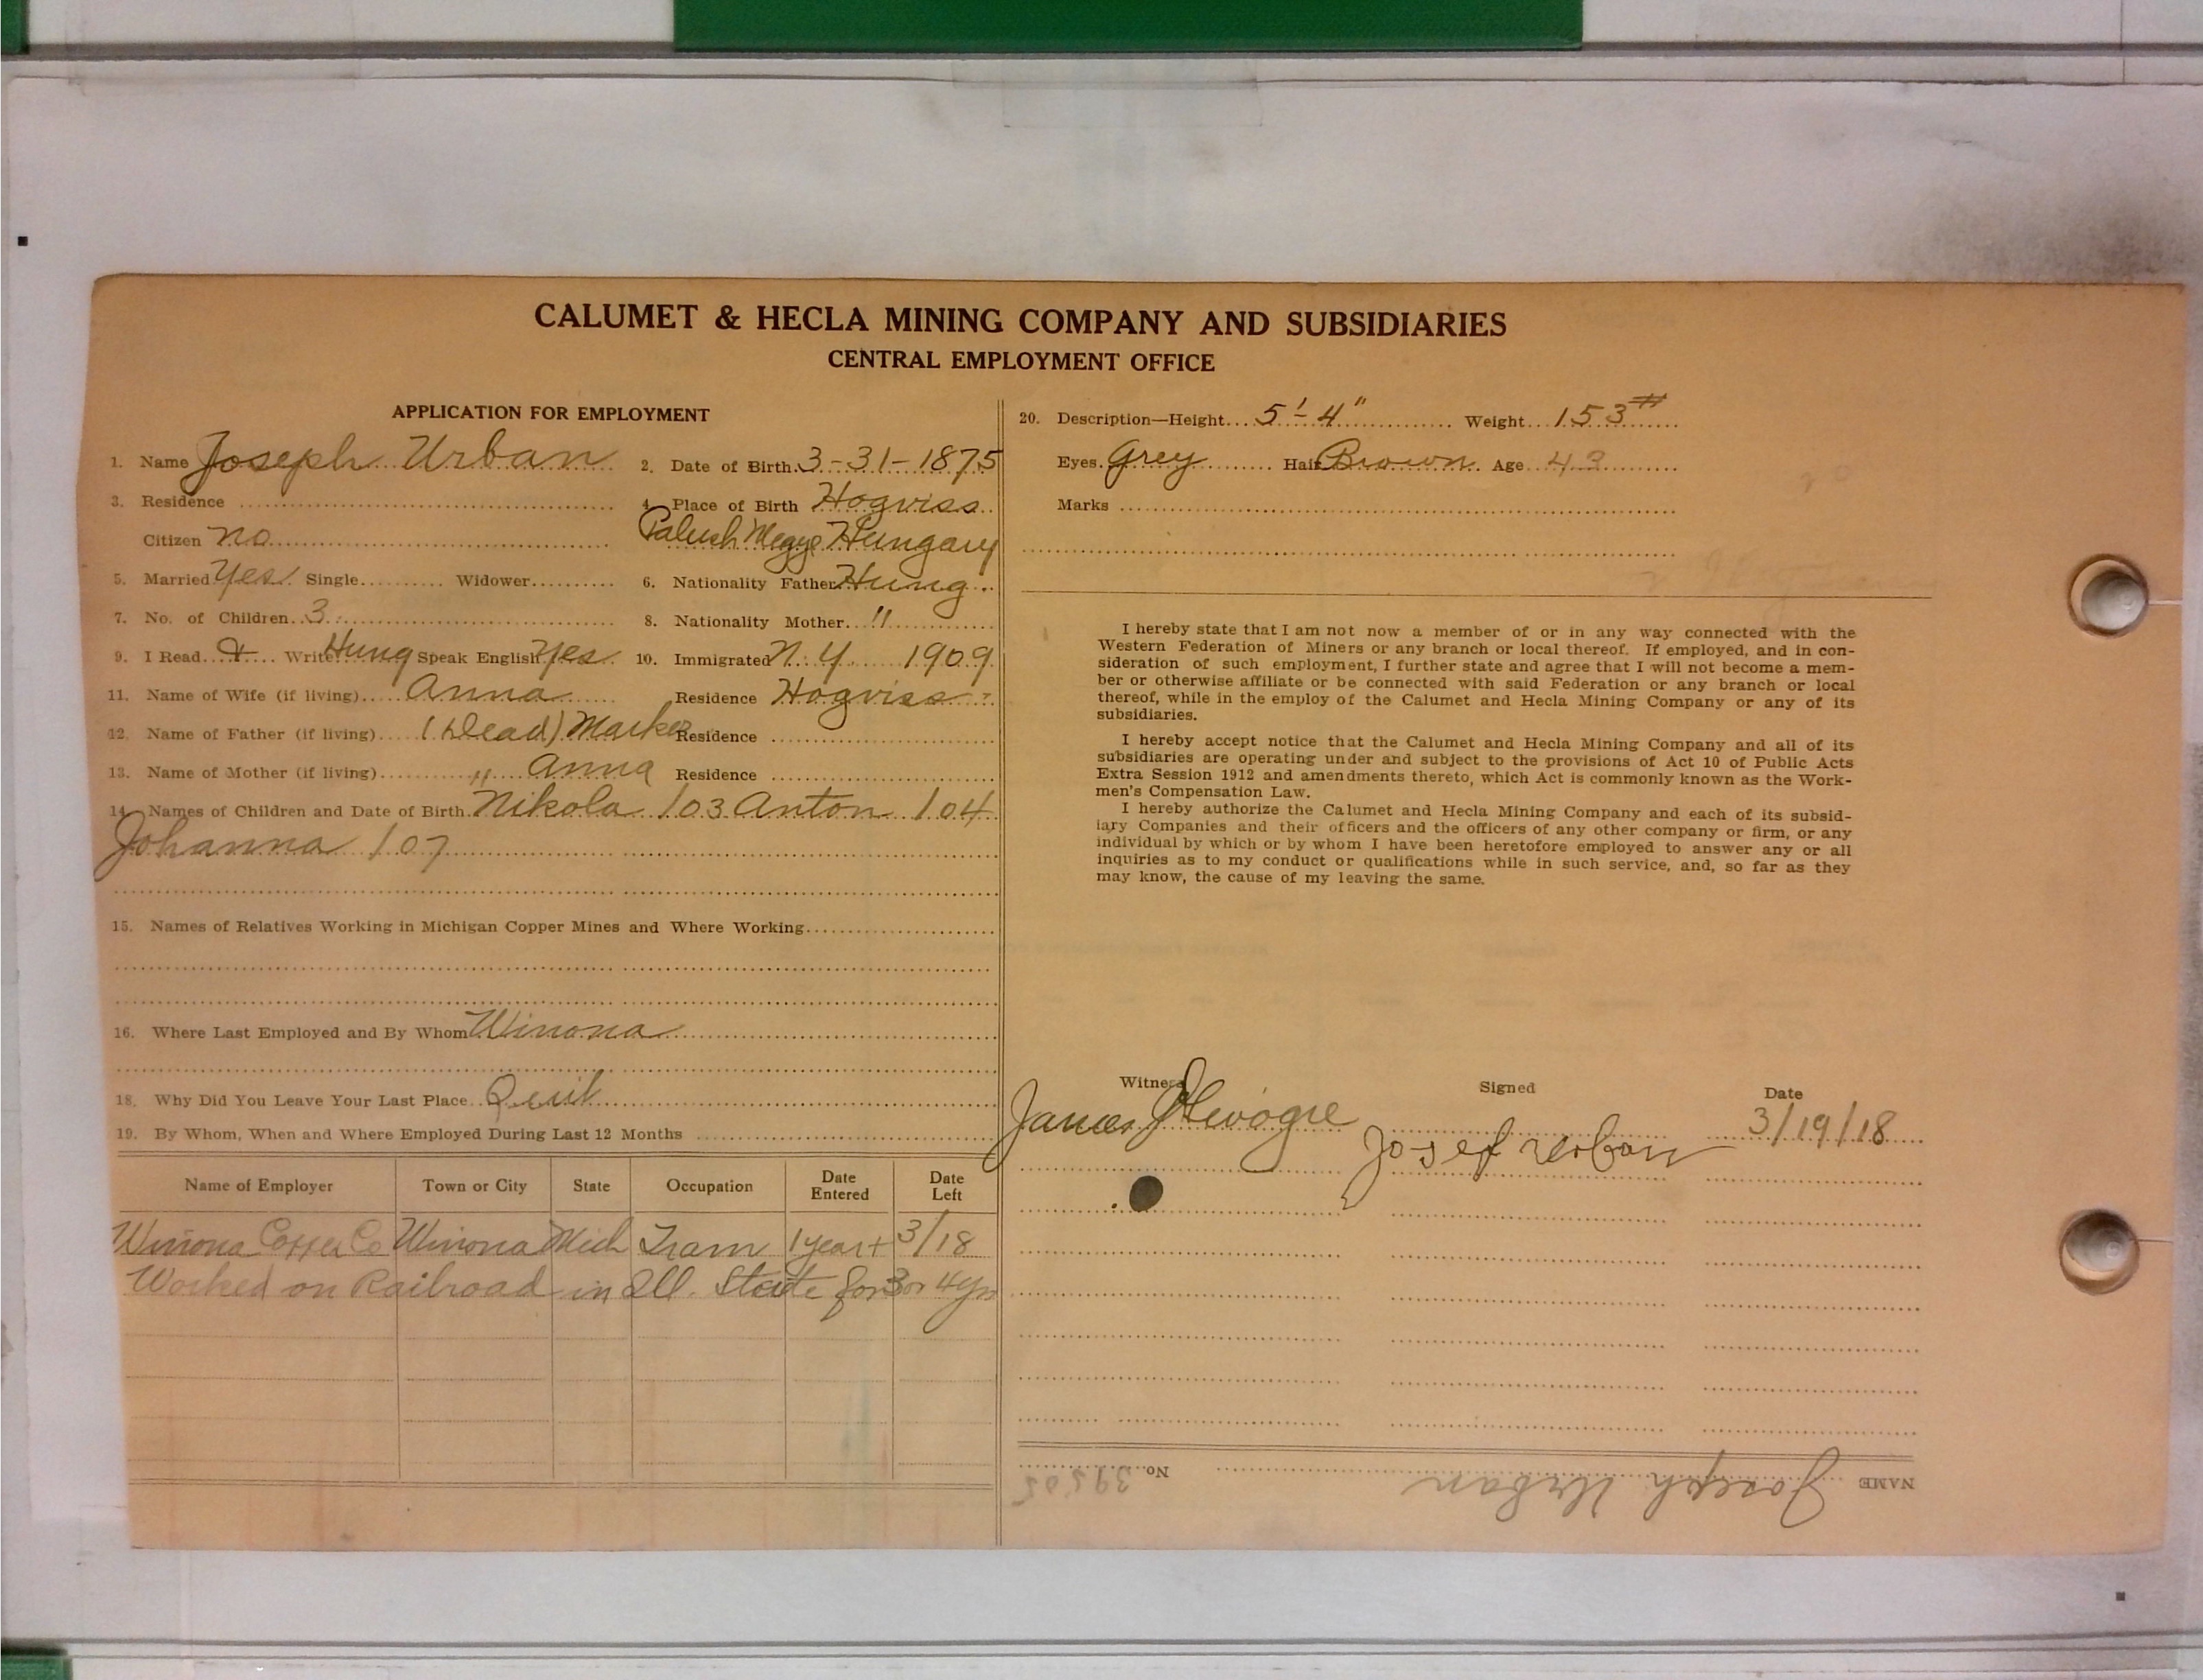 CALUMET & HECLA MINING COMPANY AND SUBSIDIARIES
CENTRAL EMPLOYMENT OFFICE
APPLICATION FOR EMPLOYMENT
1. Name Joseph Urban 2. Date of Birth 3-31-1875
3. Residence 4. Place of Birth Hogviss
Citizen no Palush Megye Hungary
5. Married Yes Single Widower 6. Nationality Father Hung
7. No. of Children 3 8. Nationality Mother "
9. I Read & Write Hung Speak English Yes 10. Immigrated N. Y. 1909
11. Name of Wife (if living) Anna Residence Hogviss
12. Name of Father (if living) (Dead) Residence
13. Name of Mother (if living) " Anna Residence
14. Names of Children and Date of Birth Nikola /03 Anton /04
Johanna /07
15. Names of Relatives Working in Michigan Copper Mines and Where Working
16. Where Last Employed and By Whom Winona
18. Why Did You Leave Your Last Place Quit
19. By Whom, When and Where Employed During Last 12 Months
Name of Employer Town or City State Occupation Date Entered Date Left
Winona Copper Co Winona Mich Tram 1 year + 3/18
Worked on Railroad in Ill. State for 3 or 4 yrs
20. Description—Height 5'-4" Weight 153#
Eyes Grey Hair Brown Age 43
Marks
I hereby state that I am not now a member of or in any way connected with the
Western Federation of Miners or any branch or local thereof. If employed, and in con-
sideration of such employment, I further state and agree that I will not become a mem-
ber or otherwise affiliate or be connected with said Federation or any branch or local
thereof, while in the employ of the Calumet and Hecla Mining Company or any of its
subsidiaries.
I hereby accept notice that the Calumet and Hecla Mining Company and all of its
subsidiaries are operating under and subject to the provisions of Act 10 of Public Acts
Extra Session 1912 and amendments thereto, which Act is commonly known as the Work-
men's Compensation Law.
I hereby authorize the Calumet and Hecla Mining Company and each of its subsid-
iary Companies and their officers and the officers of any other company or firm, or any
individual by which or by whom I have been heretofore employed to answer any or all
inquiries as to my conduct or qualifications while in such service, and, so far as they
may know, the cause of my leaving the same.
Witness Signed Date
James Josef Urban 3/19/18
NAME Joseph Urban No. 39505